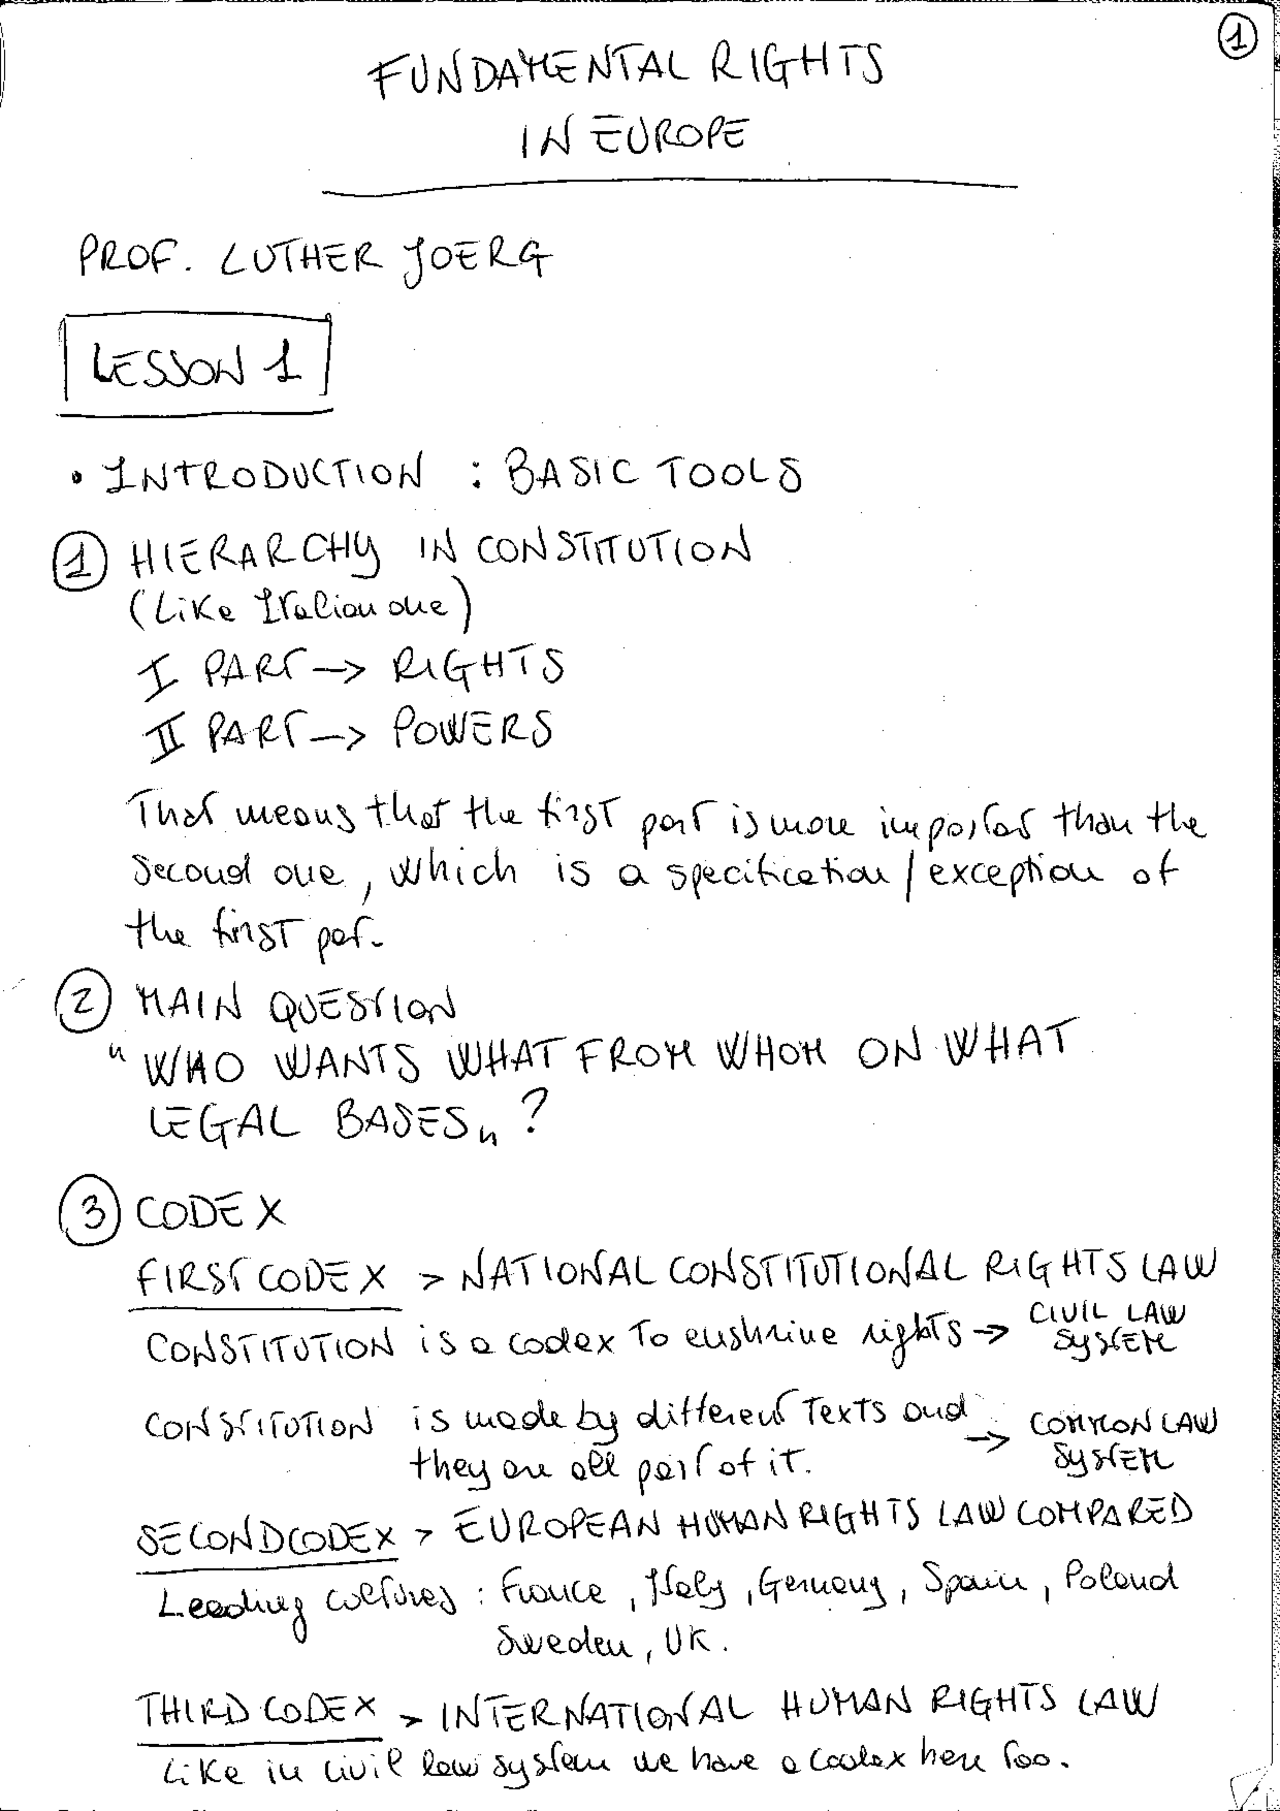 1
FUNDAMENTAL RIGHTS
IN EUROPE
PROF. LUTHER JOERG
LESSON 1
• INTRODUCTION : BASIC TOOLS
1 HIERARCHY IN CONSTITUTION
(Like Italian one)
I PART -> RIGHTS
II PART -> POWERS
That means that the first part is more importat than the
second one, which is a specification / exception of
the first par.
2 MAIN QUESTION
"WHO WANTS WHAT FROM WHOM ON WHAT
LEGAL BASES" ?
3 CODEX
FIRST CODEX > NATIONAL CONSTITUTIONAL RIGHTS LAW
CONSTITUTION is a codex to enshrine rights -> CIVIL LAW
SYSTEM
CONSTITUTION is made by different texts and
they are all part of it. -> COMMON LAW
SYSTEM
SECOND CODEX > EUROPEAN HUMAN RIGHTS LAW COMPARED
Leading cultures : France, Italy, Germany, Spain, Poland
Sweden, UK.
THIRD CODEX > INTERNATIONAL HUMAN RIGHTS LAW
Like in civil law system we have a codex here too.